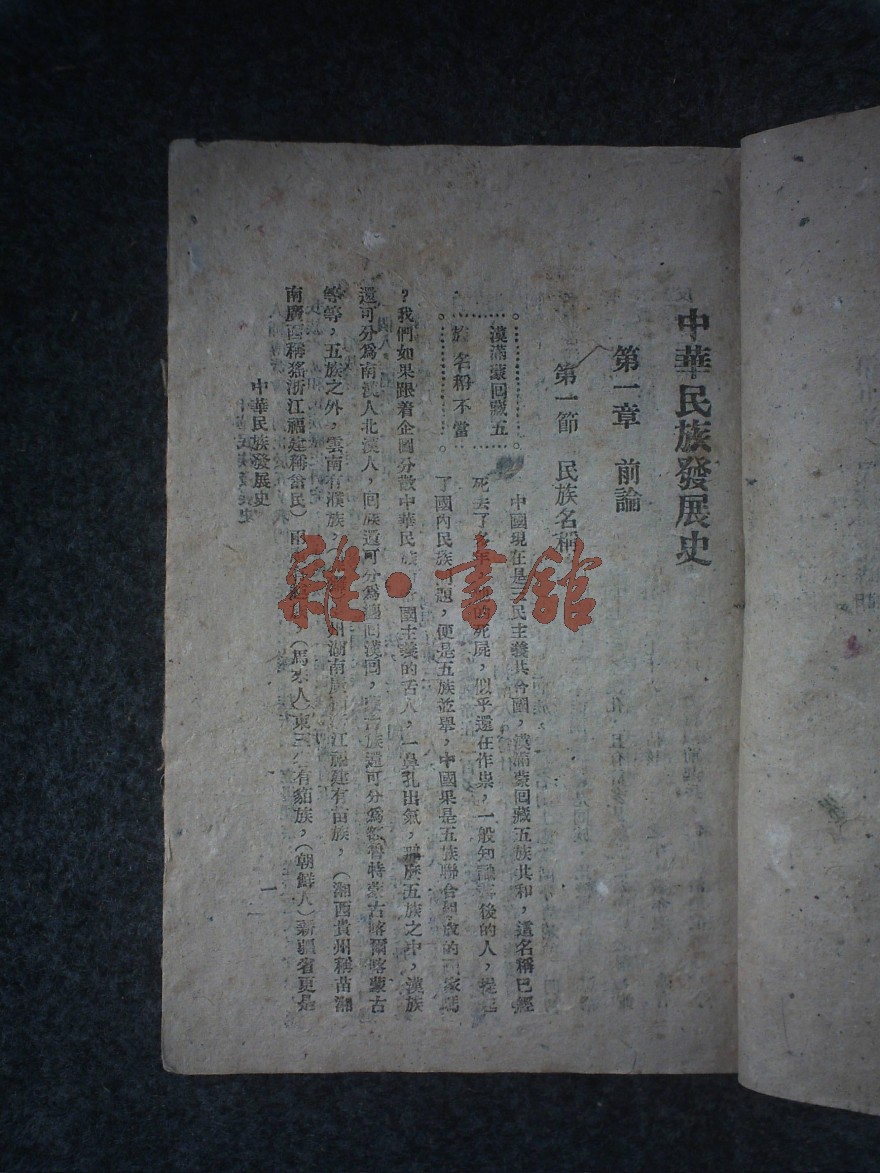 中華民族發展史
第一章　前論
第一節　民族名稱
漢滿蒙回藏五
族名稱不當
中國現在是三民主義共合國，漢滿蒙回藏五族共和，這名稱已經
死去了多年，死屍，似乎還在作祟，一般知識後的人，提起
了國內民族問題，便是五族並舉，中國果是五族聯合組成的國家嗎
？我們如果跟着企圖分散中華民族國主義的舌人，一鼻孔出氣，那麽五族之中，漢族
還可分爲南漢人北漢人，回族還可分爲纏回漢回，蒙古族還可分爲額魯特蒙古喀爾喀蒙古
等等，五族之外，雲南有濮族，州湖南江福建有苗族，（湘西貴州稱苗湖
南廣西稱猺浙江福建稱畬民）（馬來人）東三省有貊族，（朝鮮人）新疆省更是
中華民族發展史
一
雜·書館